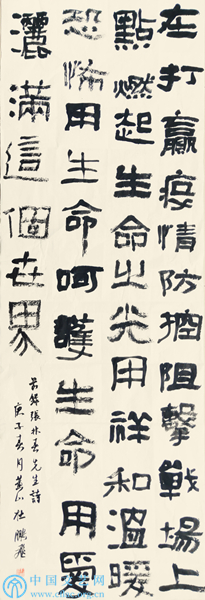 在打贏疫情防控阻擊戰場上
點燃起生命之光用祥和溫暖
恐怖用生命呵護生命用愛
灑滿這個世界
張林春先生詩
庚子春月黄山杜鵬
中国文艺网